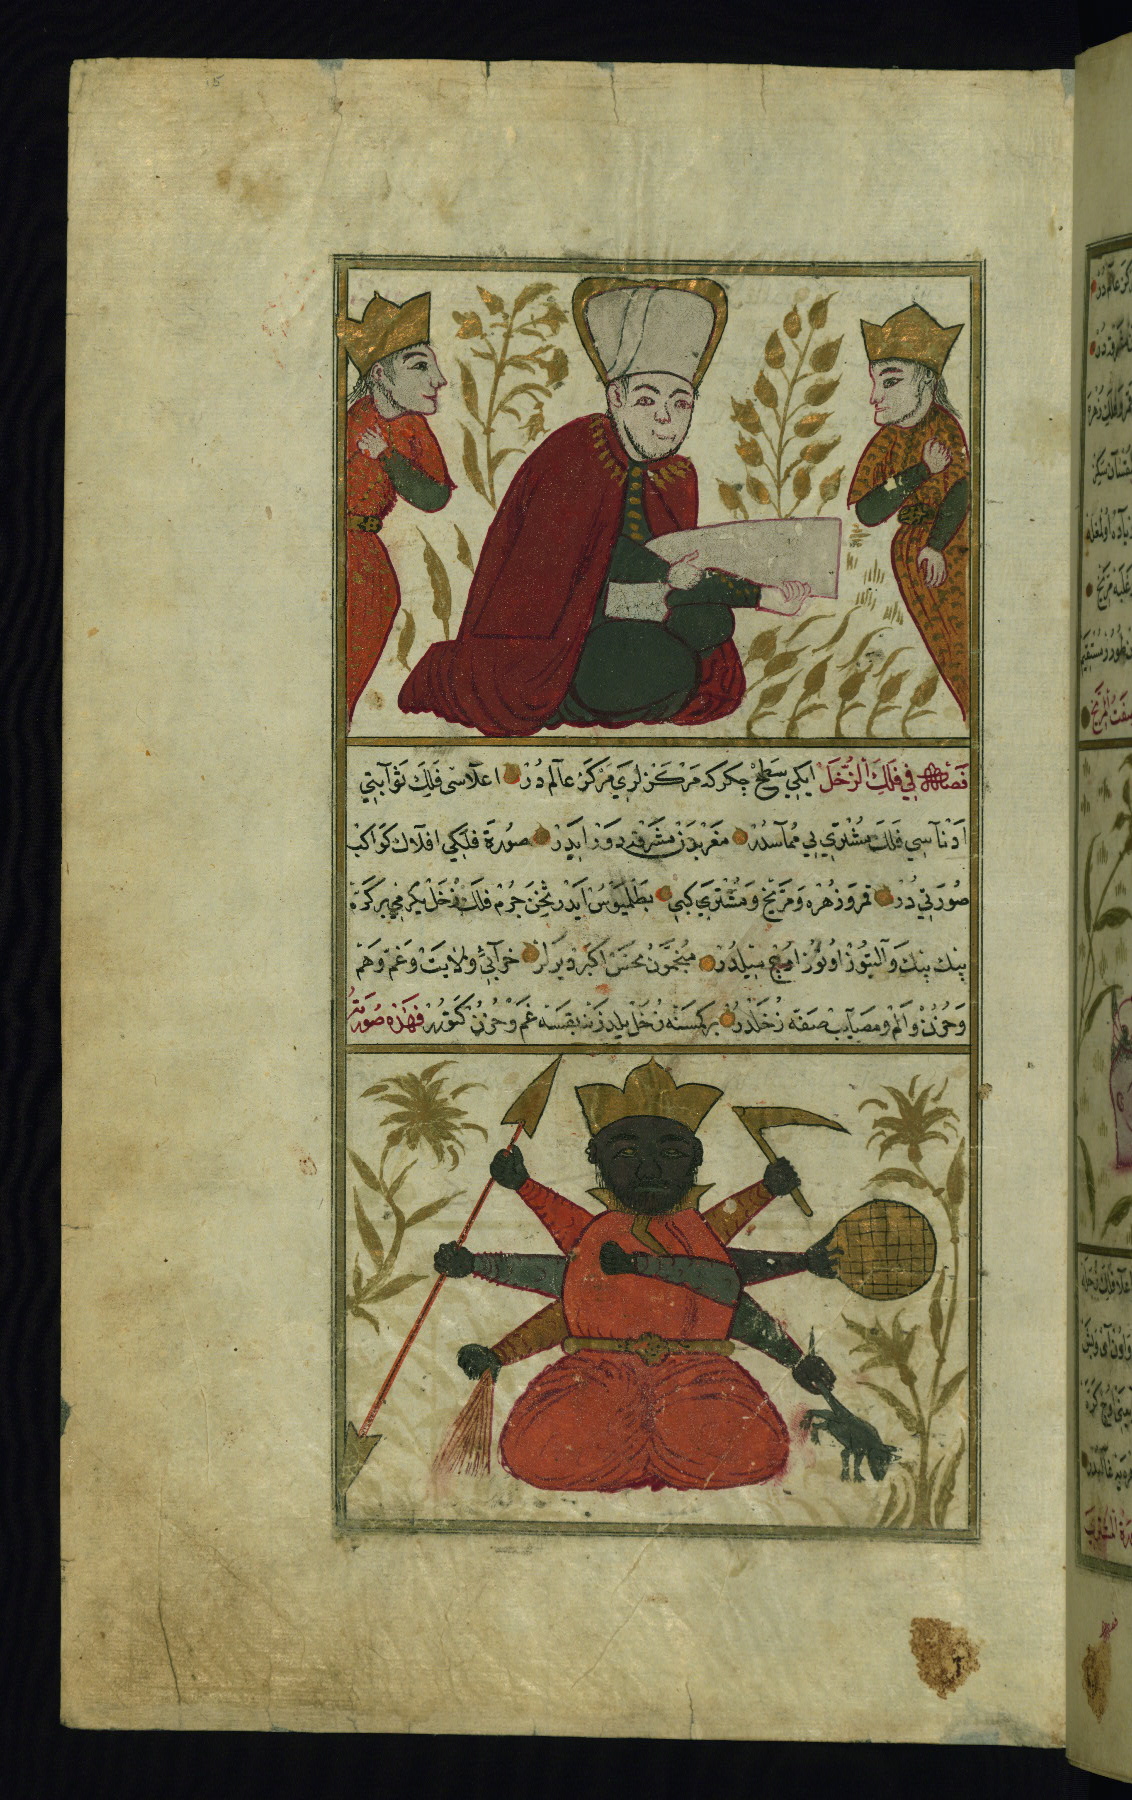 فصل في فلك الزحل ايكي سطح چكر كه مركزلري مركز عالم در اعلاسى فلك ثوابتي
ادناسي فلك مشتري يي مماسدر مغربدن مشرقه دور ايدر صورة فلكي افلاك كواكب
صورتي در قمر و زهره و مريخ و مشتري كبي بطلميوس ايدر ثخن جرم فلك زحل يكرمي بر كره
بيك بيك و التيوز اوتوز اوچ ميلدر منجمون نحس اكبر ديرلر خرابي ولايت و غم و هم
و حزن و الم و مصايب صفة زحلدر بر كمسنه زحل يلدزينه بقسه غم و حزن كتورر فهذه صورته